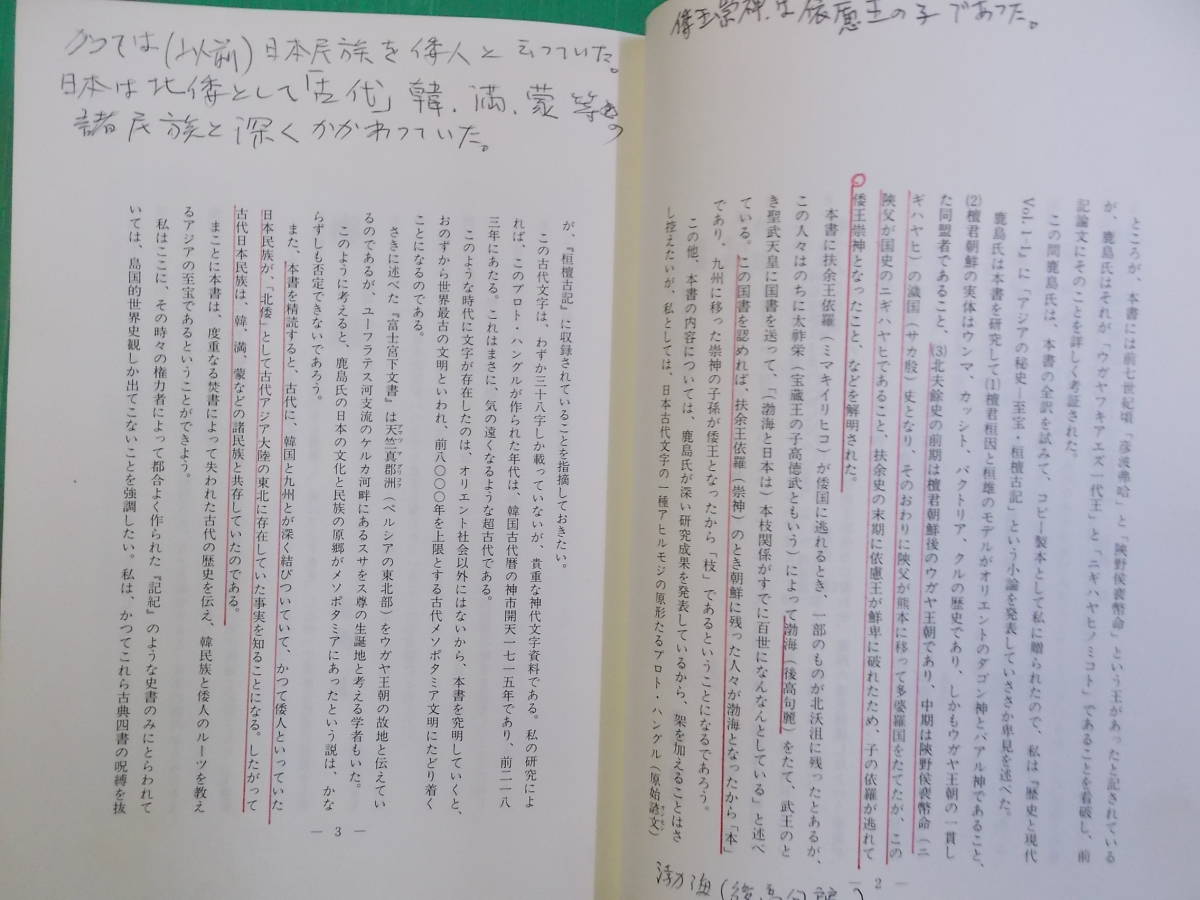 倭王崇神は依慮王の子であった。
ところが、本書には前七世紀頃「彦波弗哈」と「陜野侯裵幣命」という王があったと記されている
が、鹿島氏はそれが「ウガヤフキアエズ一代王」と「ニギハヤヒノミコト」であることを看破し、前
記論文にそのことを詳しく考証された。
この間鹿島氏は、本書の全訳を試みて、コピー製本として私に贈られたので、私は『歴史と現代
Vol.1-1』に「アジアの秘史―至宝・桓檀古記」という小論を発表していささか卑見を述べた。
鹿島氏は本書を研究して(1)檀君桓因と桓雄のモデルがオリエントのダゴン神とバアル神であること、
(2)檀君朝鮮の実体はウンマ、カッシト、バクトリア、クルの歴史であり、しかもウガヤ王朝の一貫し
た同盟者であること、(3)北夫餘史の前期は檀君朝鮮後のウガヤ王朝であり、中期は陜野侯裵幣命(ニ
ギハヤヒ)の濊国(サカ殷)史となり、そのおわりに陜父が熊本に移って多婆羅国をたてたが、この
陜父が国史のニギハヤヒであること、扶余史の末期に依慮王が鮮卑に破れたため、子の依羅が逃れて
倭王崇神となったこと、などを解明された。
本書に扶余王依羅(ミマキイリヒコ)が倭国に逃れるとき、一部のものが北沃沮に残ったとあるが、
この人々はのちに太祚栄(宝蔵王の子高徳武ともいう)によって渤海(後高句麗)をたて、武王のと
き聖武天皇に国書を送って、「(渤海と日本は)本枝関係がすでに百世になんなんとしている」と述べ
ている。この国書を認めれば、扶余王依羅(崇神)のとき朝鮮に残った人々が渤海となったから「本」
であり、九州に移った崇神の子孫が倭王となったから「枝」であるということになるであろう。
この他、本書の内容については、鹿島氏が深い研究成果を発表しているから、架を加えることはさ
し控えたいが、私としては、日本古代文字の一種アヒルモジの原形たるプロト・ハングル(原始諺文)
— 2 —
渤海(後高句麗)
かつては(以前)日本民族を倭人と云っていた。
日本は北倭として「古代」韓.満.蒙等の
諸民族と深くかかわっていた。
が、『桓檀古記』に収録されていることを指摘しておきたい。
この古代文字は、わずか三十八字しか載っていないが、貴重な神代文字資料である。私の研究によ
れば、このプロト・ハングルが作られた年代は、韓国古代暦の神市開天一七一五年であり、前二一八
三年にあたる。これはまさに、気の遠くなるような超古代である。
このような時代に文字が存在したのは、オリエント社会以外にはないから、本書を究明していくと、
おのずから世界最古の文明といわれ、前八〇〇〇年を上限とする古代メソポタミア文明にたどり着く
ことになるのである。
さきに述べた『富士宮下文書』は天竺真郡洲(ペルシアの東北部)をウガヤ王朝の故地と伝えてい
るのであるが、ユーフラテス河支流のケルカ河畔にあるスサをスサ尊の生誕地と考える学者もいた。
このように考えると、鹿島氏の日本の文化と民族の原郷がメソポタミアにあったという説は、かな
らずしも否定できないであろう。
また、本書を精読すると、古代に、韓国と九州とが深く結びついていて、かつて倭人といっていた
日本民族が、「北倭」として古代アジア大陸の東北に存在していた事実を知ることになる。したがって
古代日本民族は、韓、満、蒙などの諸民族と共存していたのである。
まことに本書は、度重なる焚書によって失われた古代の歴史を伝え、韓民族と倭人のルーツを教え
るアジアの至宝であるということができよう。
私はここに、その時々の権力者によって都合よく作られた『記紀』のような史書のみにとらわれて
いては、島国的世界史観しか出てこないことを強調したい。私は、かつてこれら古典四書の呪縛を抜
— 3 —